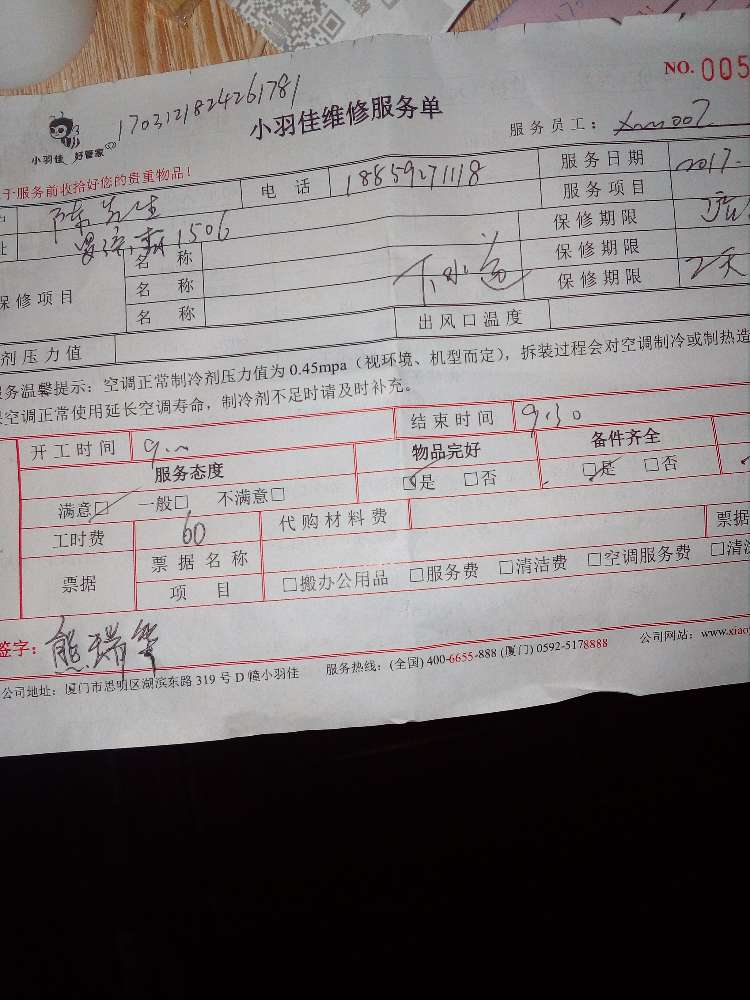 NO. 005
1703121824261781
小羽佳维修服务单
小羽佳 好管家
服务员工： xm007
于服务前收拾好您的贵重物品！
陈先生 电话 18859271118 服务日期 2017.
址 1506 服务项目
保修项目 名称 保修期限
名称 下水道 保修期限
名称 保修期限 2天
剂压力值 出风口温度
服务温馨提示：空调正常制冷剂压力值为 0.45mpa（视环境、机型而定），拆装过程会对空调制冷或制热造
空调正常使用延长空调寿命，制冷剂不足时请及时补充。
开工时间 9.00 结束时间 9.30
服务态度 物品完好 备件齐全
满意□ 一般□ 不满意□ □是 □否 □是 □否
工时费 60 代购材料费
票据 票据名称 票据
项目 □搬办公用品 □服务费 □清洁费 □空调服务费 □清洗
签字：熊瑞华
公司地址：厦门市思明区湖滨东路 319 号 D 幢小羽佳 服务热线：(全国) 400-6655-888 (厦门) 0592-5178888 公司网站：www.xiaoy